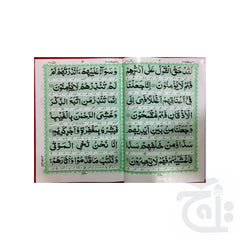 لَقَدْ حَقَّ الْقَوْلُ عَلٰٓى اَكْثَرِهِمْ
فَهُمْ لَا يُؤْمِنُوْنَ اِنَّا جَعَلْنَا
فِيْٓ اَعْنَاقِهِمْ اَغْلٰلًا فَهِيَ اِلَى
الْاَذْقَانِ فَهُمْ مُّقْمَحُوْنَ
وَجَعَلْنَا مِنْۢ بَيْنِ اَيْدِيْهِمْ
سَدًّا وَّمِنْ خَلْفِهِمْ سَدًّا
فَاَغْشَيْنٰهُمْ فَهُمْ لَا يُبْصِرُوْنَ
وَسَوَآءٌ عَلَيْهِمْ ءَاَنْذَرْتَهُمْ اَمْ
لَمْ تُنْذِرْهُمْ لَا يُؤْمِنُوْنَ
اِنَّمَا تُنْذِرُ مَنِ اتَّبَعَ الذِّكْرَ
وَخَشِيَ الرَّحْمٰنَ بِالْغَيْبِ
فَبَشِّرْهُ بِمَغْفِرَةٍ وَّاَجْرٍ كَرِيْمٍ
اِنَّا نَحْنُ نُحْيِ الْمَوْتٰى
وَنَكْتُبُ مَا قَدَّمُوْا وَاٰثَارَهُمْ